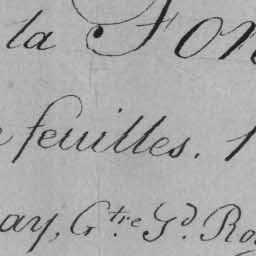 la Fon
feuilles. 1
ay, G.tre J.d Ro